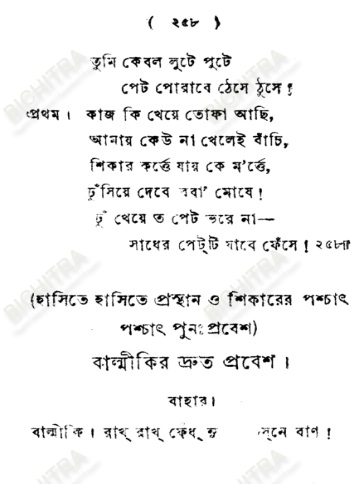 ( ২৫৮ )
তুমি কেবল লুটে পুটে
পেট পোরাবে ঠেসে ঠুসে !
প্রথম। কাজ কি খেয়ে তোফা আছি,
আমায় কেউ না খেলেই বাঁচি,
শিকার কর্ত্তে যায় কে ম’র্ত্তে,
ঢুঁসিয়ে দেবে বরা’ মোষে !
ঢুঁ খেয়ে ত পেট ভরে না—
সাধের পেট্‌টি যাবে ফেঁসে ! ২৫৮॥
(হাসিতে হাসিতে প্রস্থান ও শিকারের পশ্চাৎ
পশ্চাৎ পুনঃপ্রবেশ)
বাল্মীকির দ্রুত প্রবেশ ।
বাহার।
বাল্মীকি। রাখ্ রাখ্ ফেল্ ধনু বাণ !
BICHITRA